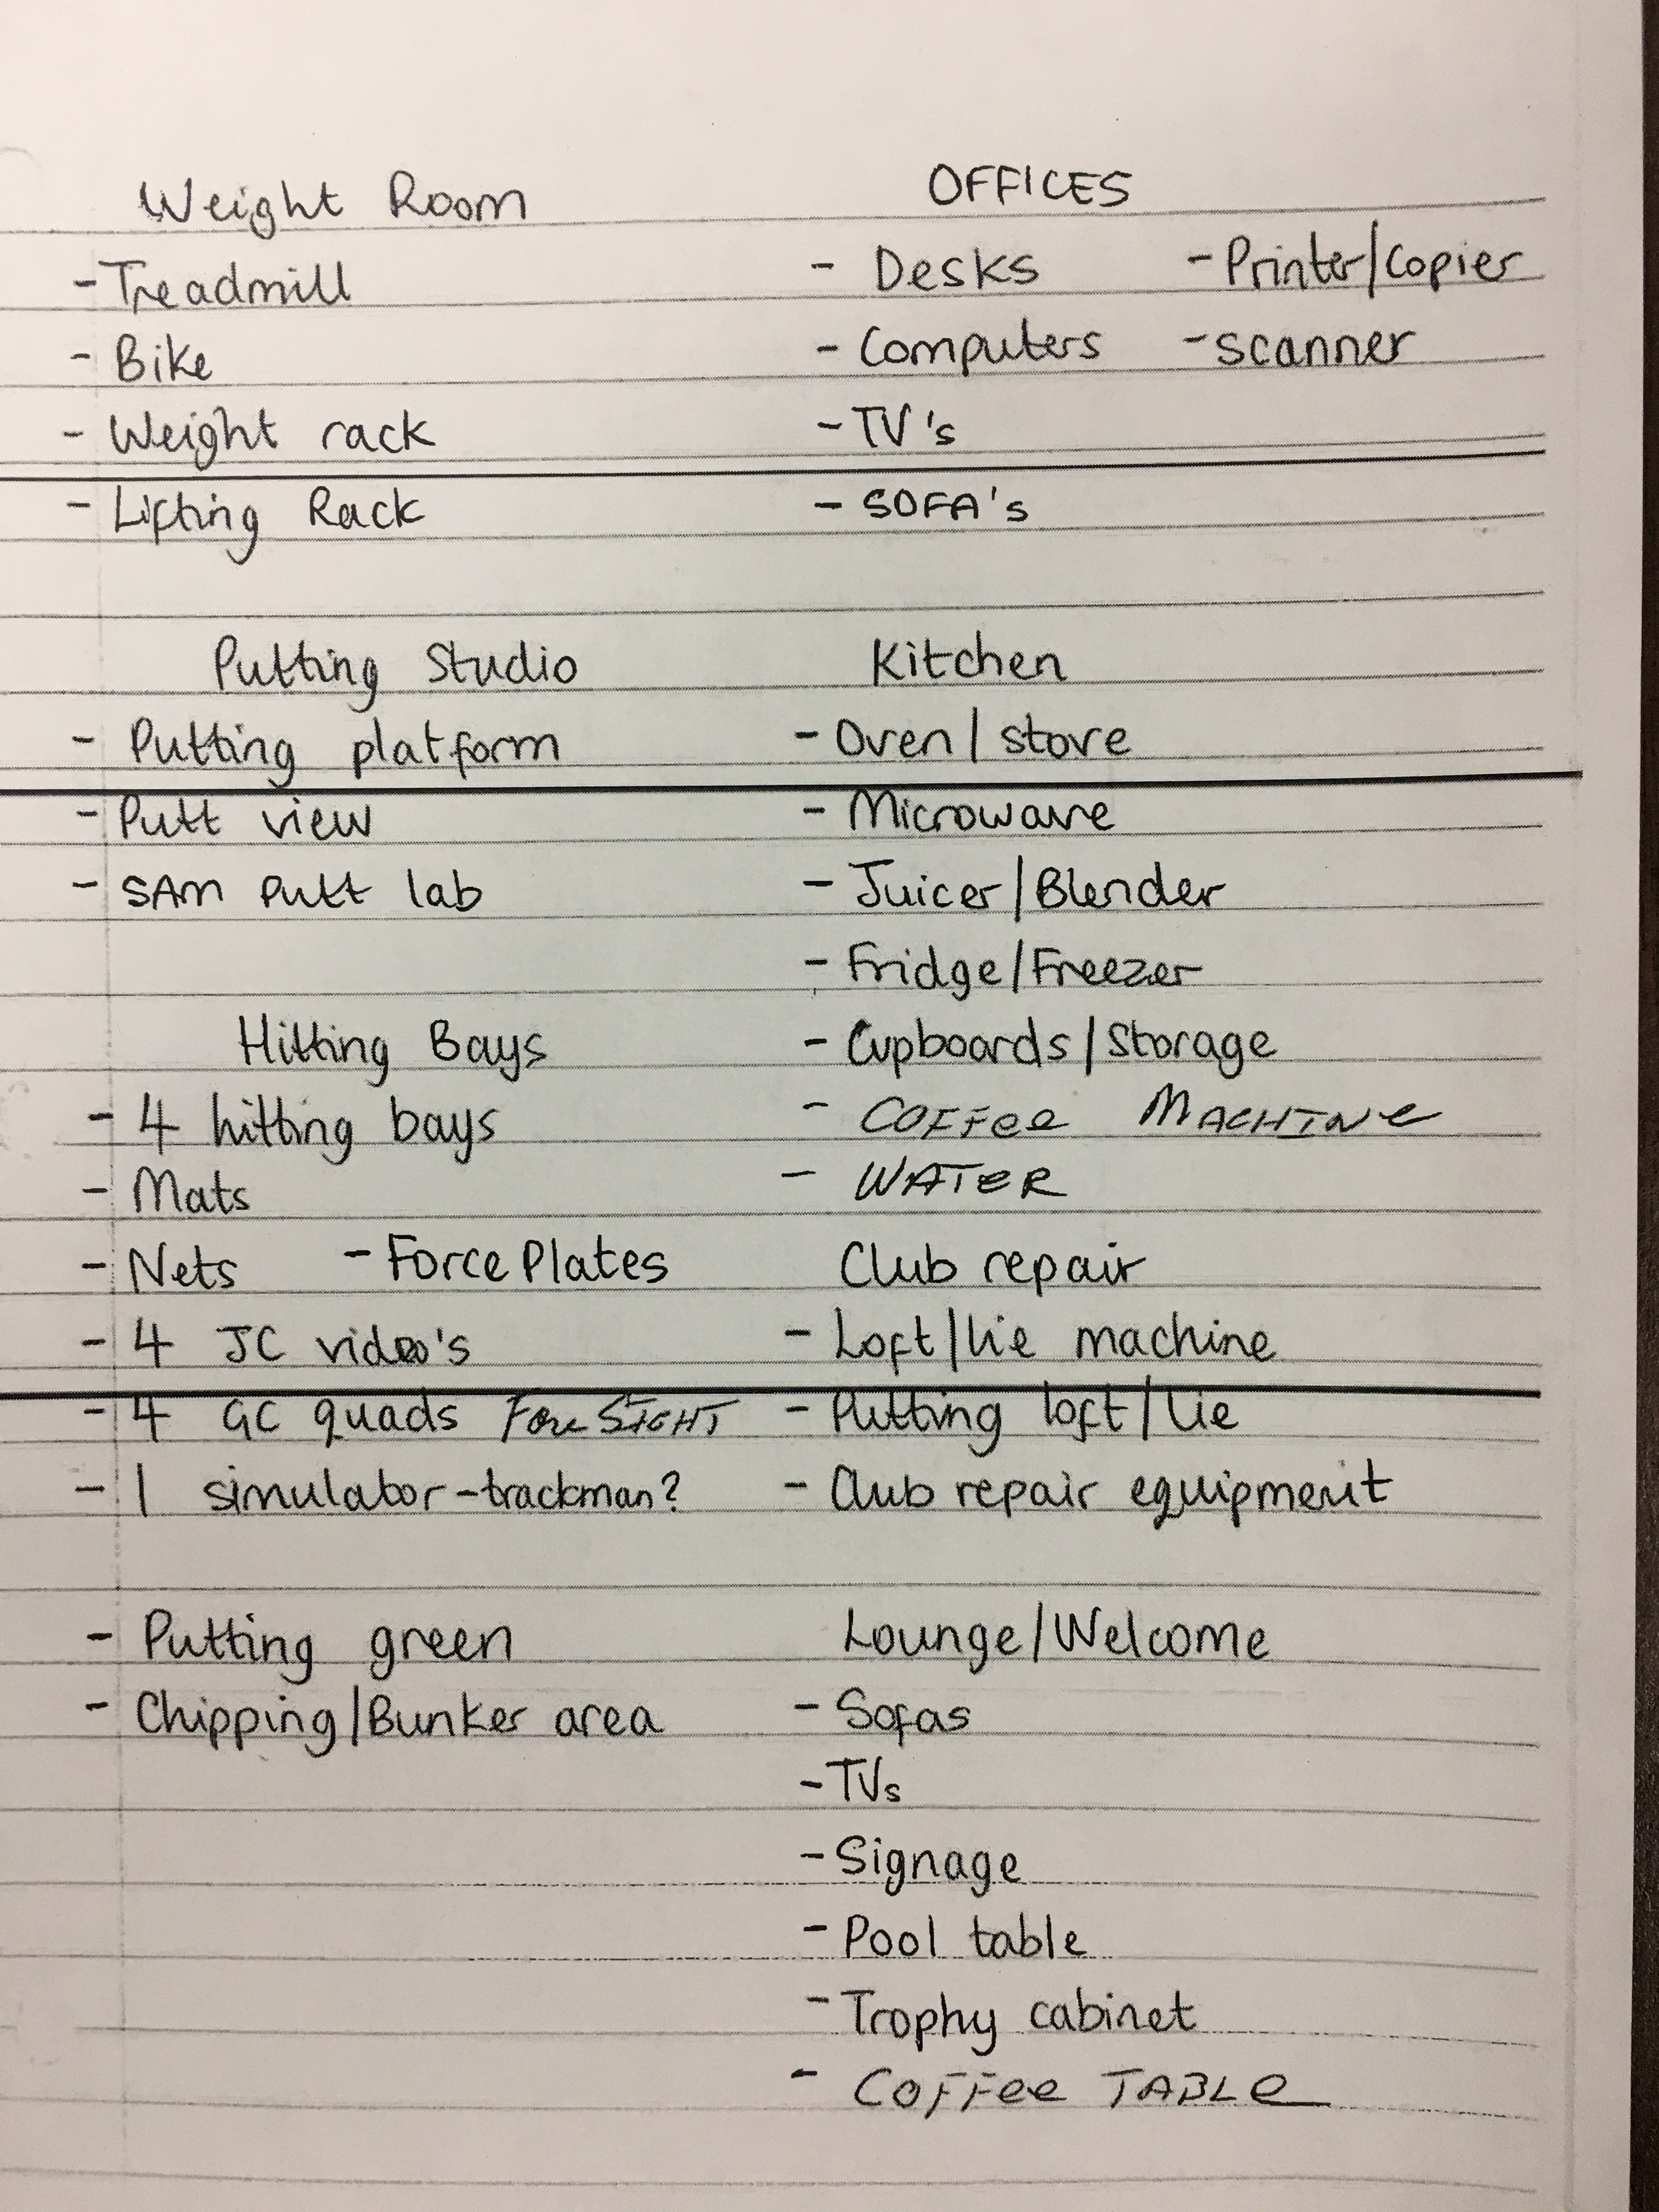 Weight Room
- Treadmill
- Bike
- Weight rack
- Lifting Rack
Putting Studio
- Putting platform
- Putt view
- SAM Putt lab
Hitting Bays
- 4 hitting bays
- Mats
- Nets - Force Plates
- 4 JC video's
- 4 GC quads ForeSIGHT
- 1 simulator - trackman?
- Putting green
- Chipping/Bunker area
OFFICES
- Desks - Printer/Copier
- Computers - scanner
- TV's
- SOFA's
Kitchen
- Oven/stove
- Microwave
- Juicer/Blender
- Fridge/Freezer
- Cupboards/Storage
- COFFee MACHINe
- WATeR
Club repair
- Loft/lie machine
- Putting loft/lie
- Club repair equipment
Lounge/Welcome
- Sofas
- TVs
- Signage
- Pool table
- Trophy cabinet
- COFFee TABLe